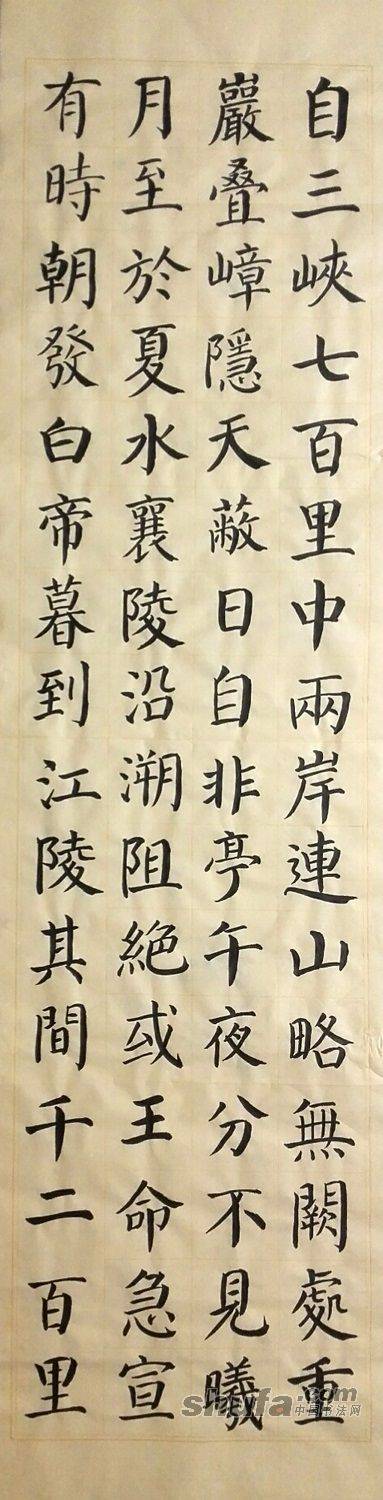 自三峽七百里中兩岸連山略無闕處重
巖疊嶂隱天蔽日自非亭午夜分不見曦
月至於夏水襄陵沿溯阻絕或王命急宣
有時朝發白帝暮到江陵其間千二百里
shufa.com
中国书法网